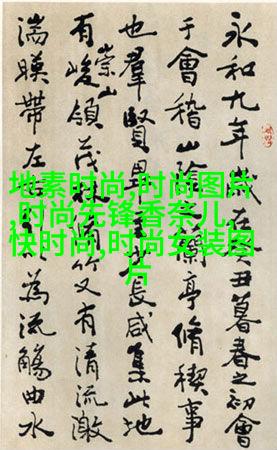 永和九年歲在丑暮春之初會
于會稽山蘭亭脩稧事
也羣賢畢長咸集此地
有崇山峻領茂竹又有清流激
湍暎帶左為流觴曲水
地素时尚,时尚图片
,时尚先锋香奈儿,
快时尚,时尚女装图
片